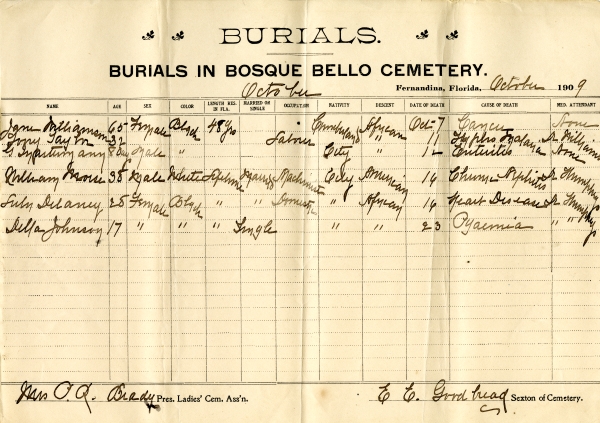 BURIALS.
BURIALS IN BOSQUE BELLO CEMETERY.
October Fernandina, Florida, October 1909
NAME AGE SEX COLOR LENGTH RES. IN FLA. MARRIED OR SINGLE OCCUPATION NATIVITY DESCENT DATE OF DEATH CAUSE OF DEATH MED. ATTENDANT
Jane Williamson 65 Female Black 48 yrs African Oct 7 Cancer None
Taylor 32 " Labor " " 11 Dr Williams
Male City " 12 Enteritis None
William 38 Male White Lifetime Machinist City American 14 Chronic Nephritis Dr Humphreys
July Delaney 25 Female Black " " Domestic " African 16 Heart Disease Dr Humphreys
Della Johnson 17 " " " Single " " 23 Pyaemia " "
Mrs Brady Pres. Ladies' Cem. Ass'n. E E. Goodbread Sexton of Cemetery.